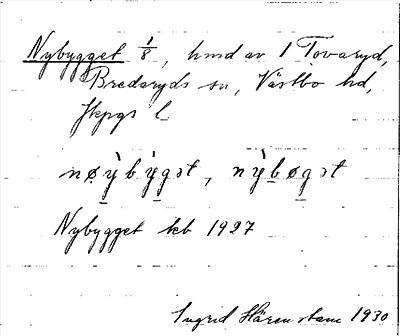 Nybygget 1/8, hmd av 1 Tovaryd,
Bredaryds sn, Västbo hd,
Jkpgs l
nøẙbẙgət, nẙbøgət
Nybygget kb 1927
Ingrid Härenstam 1930